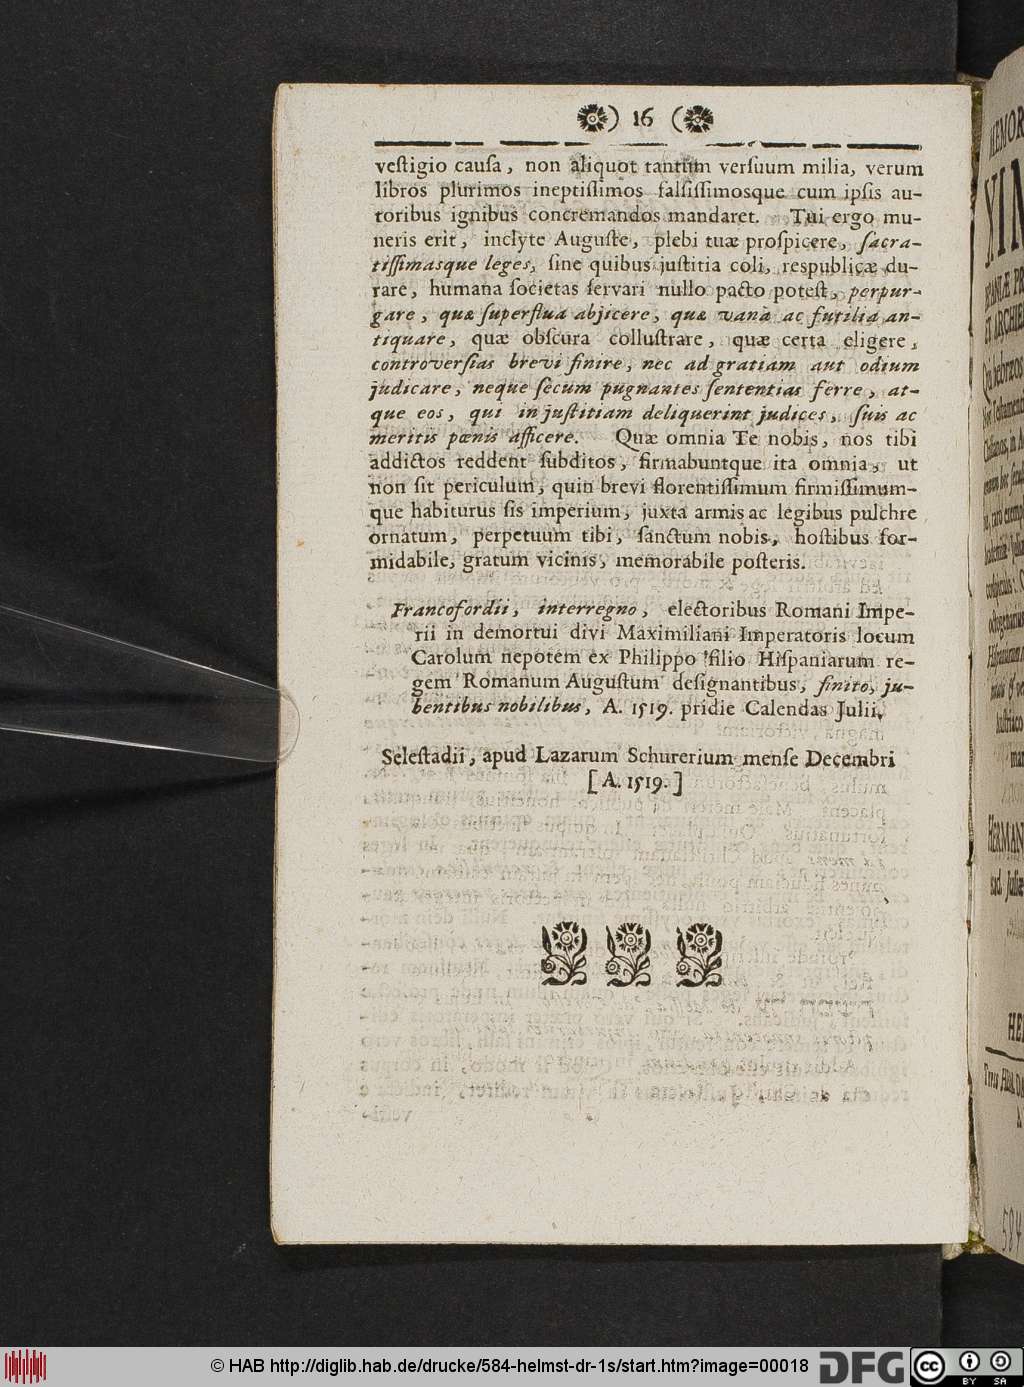 ) 16 (
vestigio causa, non aliquot tantum versuum milia, verum
libros plurimos ineptissimos falsissimosque cum ipsis au-
toribus ignibus concremandos mandaret. Tui ergo mu-
neris erit, inclyte Auguste, plebi tuæ prospicere, sacra-
tissimasque leges, sine quibus justitia coli, respublicæ du-
rare, humana societas servari nullo pacto potest, perpur-
gare, quæ superflua abjicere, quæ vana ac futilia an-
tiquare, quæ obscura collustrare, quæ certa eligere,
controversias brevi finire, nec ad gratiam aut odium
judicare, neque secum pugnantes sententias ferre, at-
que eos, qui injustitiam deliquerint judices, suis ac
meritis pœnis afficere. Quæ omnia Te nobis, nos tibi
addictos reddent subditos, firmabuntque ita omnia, ut
non sit periculum, quin brevi florentissimum firmissimum-
que habiturus sis imperium, juxta armis ac legibus pulchre
ornatum, perpetuum tibi, sanctum nobis, hostibus for-
midabile, gratum vicinis, memorabile posteris.
Francofordii, interregno, electoribus Romani Impe-
rii in demortui divi Maximiliani Imperatoris locum
Carolum nepotem ex Philippo filio Hispaniarum re-
gem Romanum Augustum designantibus, finito, ju-
bentibus nobilibus, A. 1519. pridie Calendas Julii.
Selestadii, apud Lazarum Schurerium mense Decembri
[ A. 1519. ]
MEMOR
XIM
ET ARCHIE
HERMAN
HE
584
© HAB http://diglib.hab.de/drucke/584-helmst-dr-1s/start.htm?image=00018
DFG
cc
BY SA